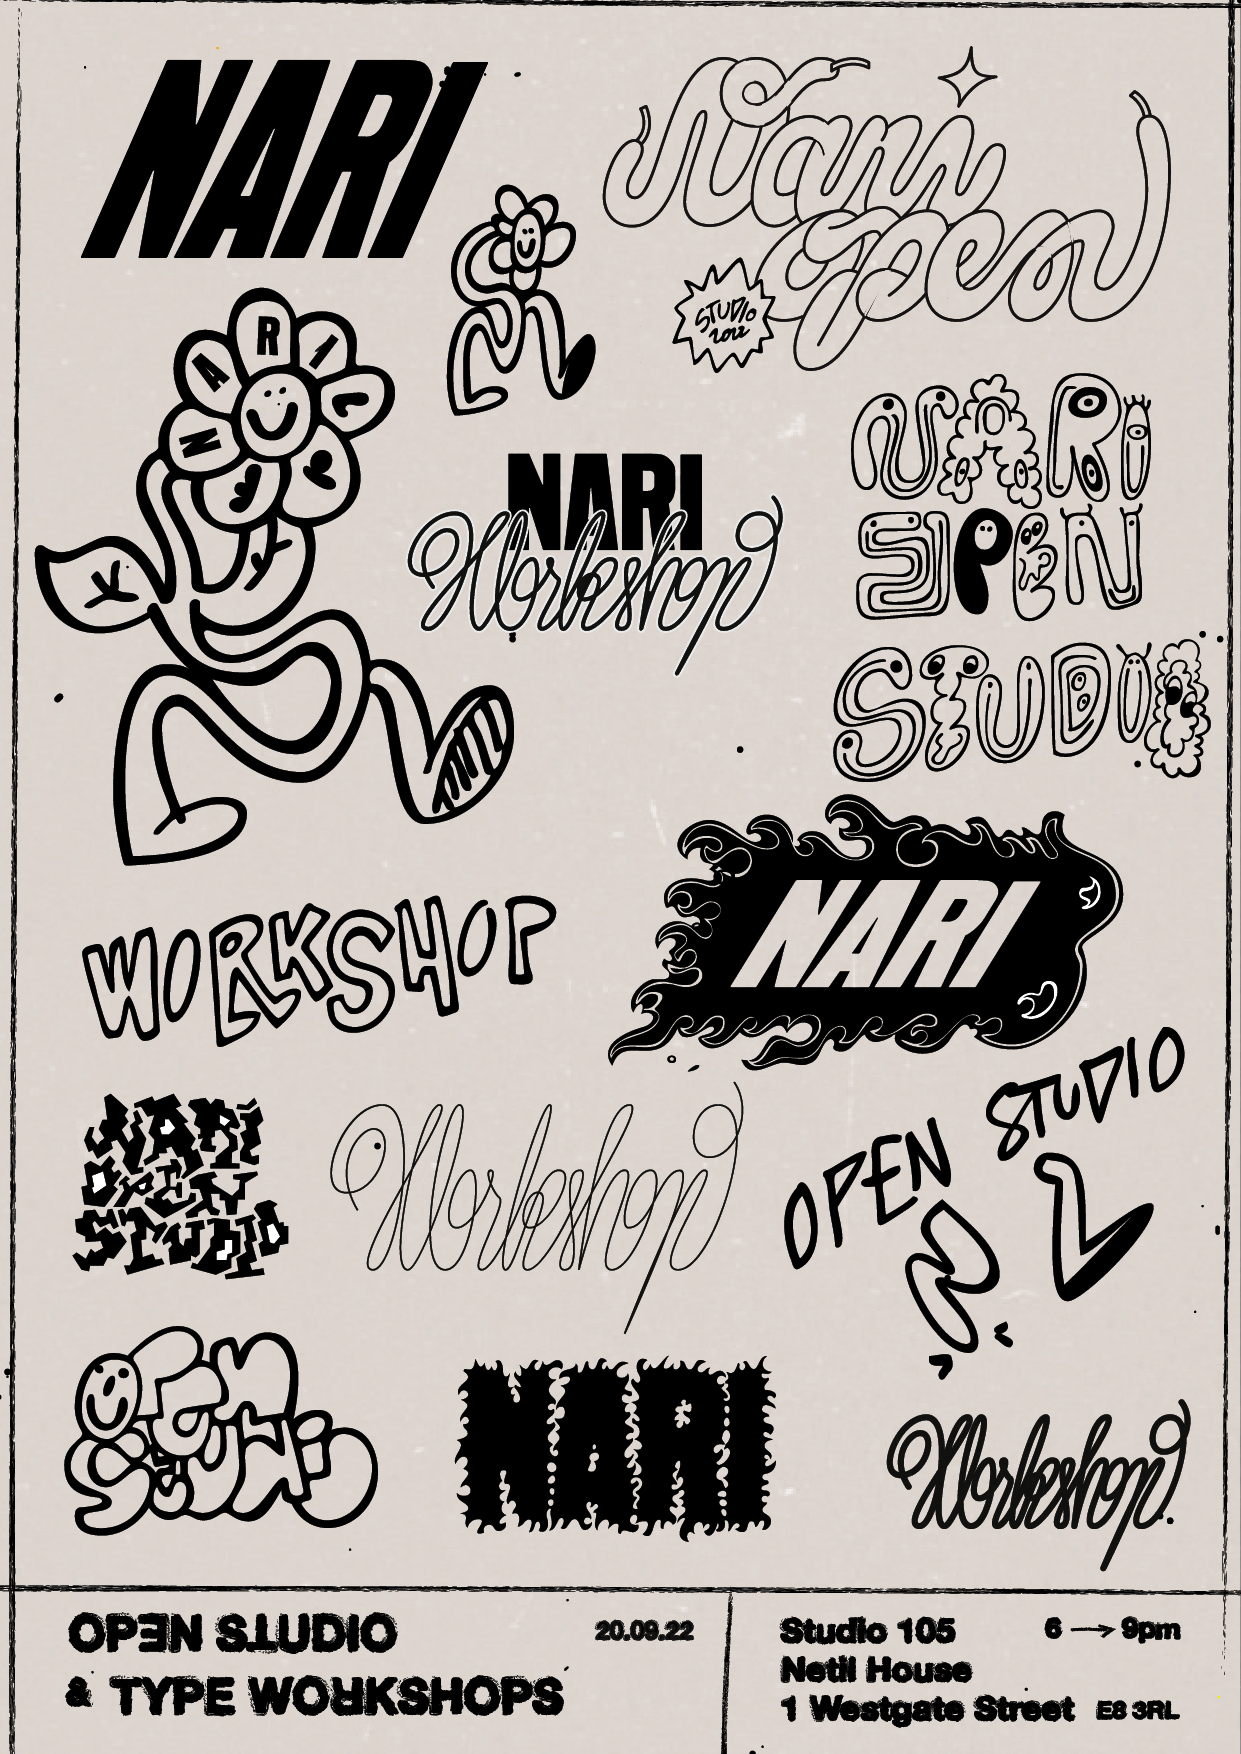 NARI
Nari
open
STUDIO
2022
NARI
TYPE
NARI
Workshop
NARI
OPEN
STUDIO
WORKSHOP
NARI
NARI
OPEN
STUDIO
Workshop
OPEN
STUDIO
OPEN
STUDIO
NARI
Workshop
OPEN STUDIO
& TYPE WORKSHOPS
20.09.22
Studio 105
6 → 9pm
Netil House
1 Westgate Street E8 3RL